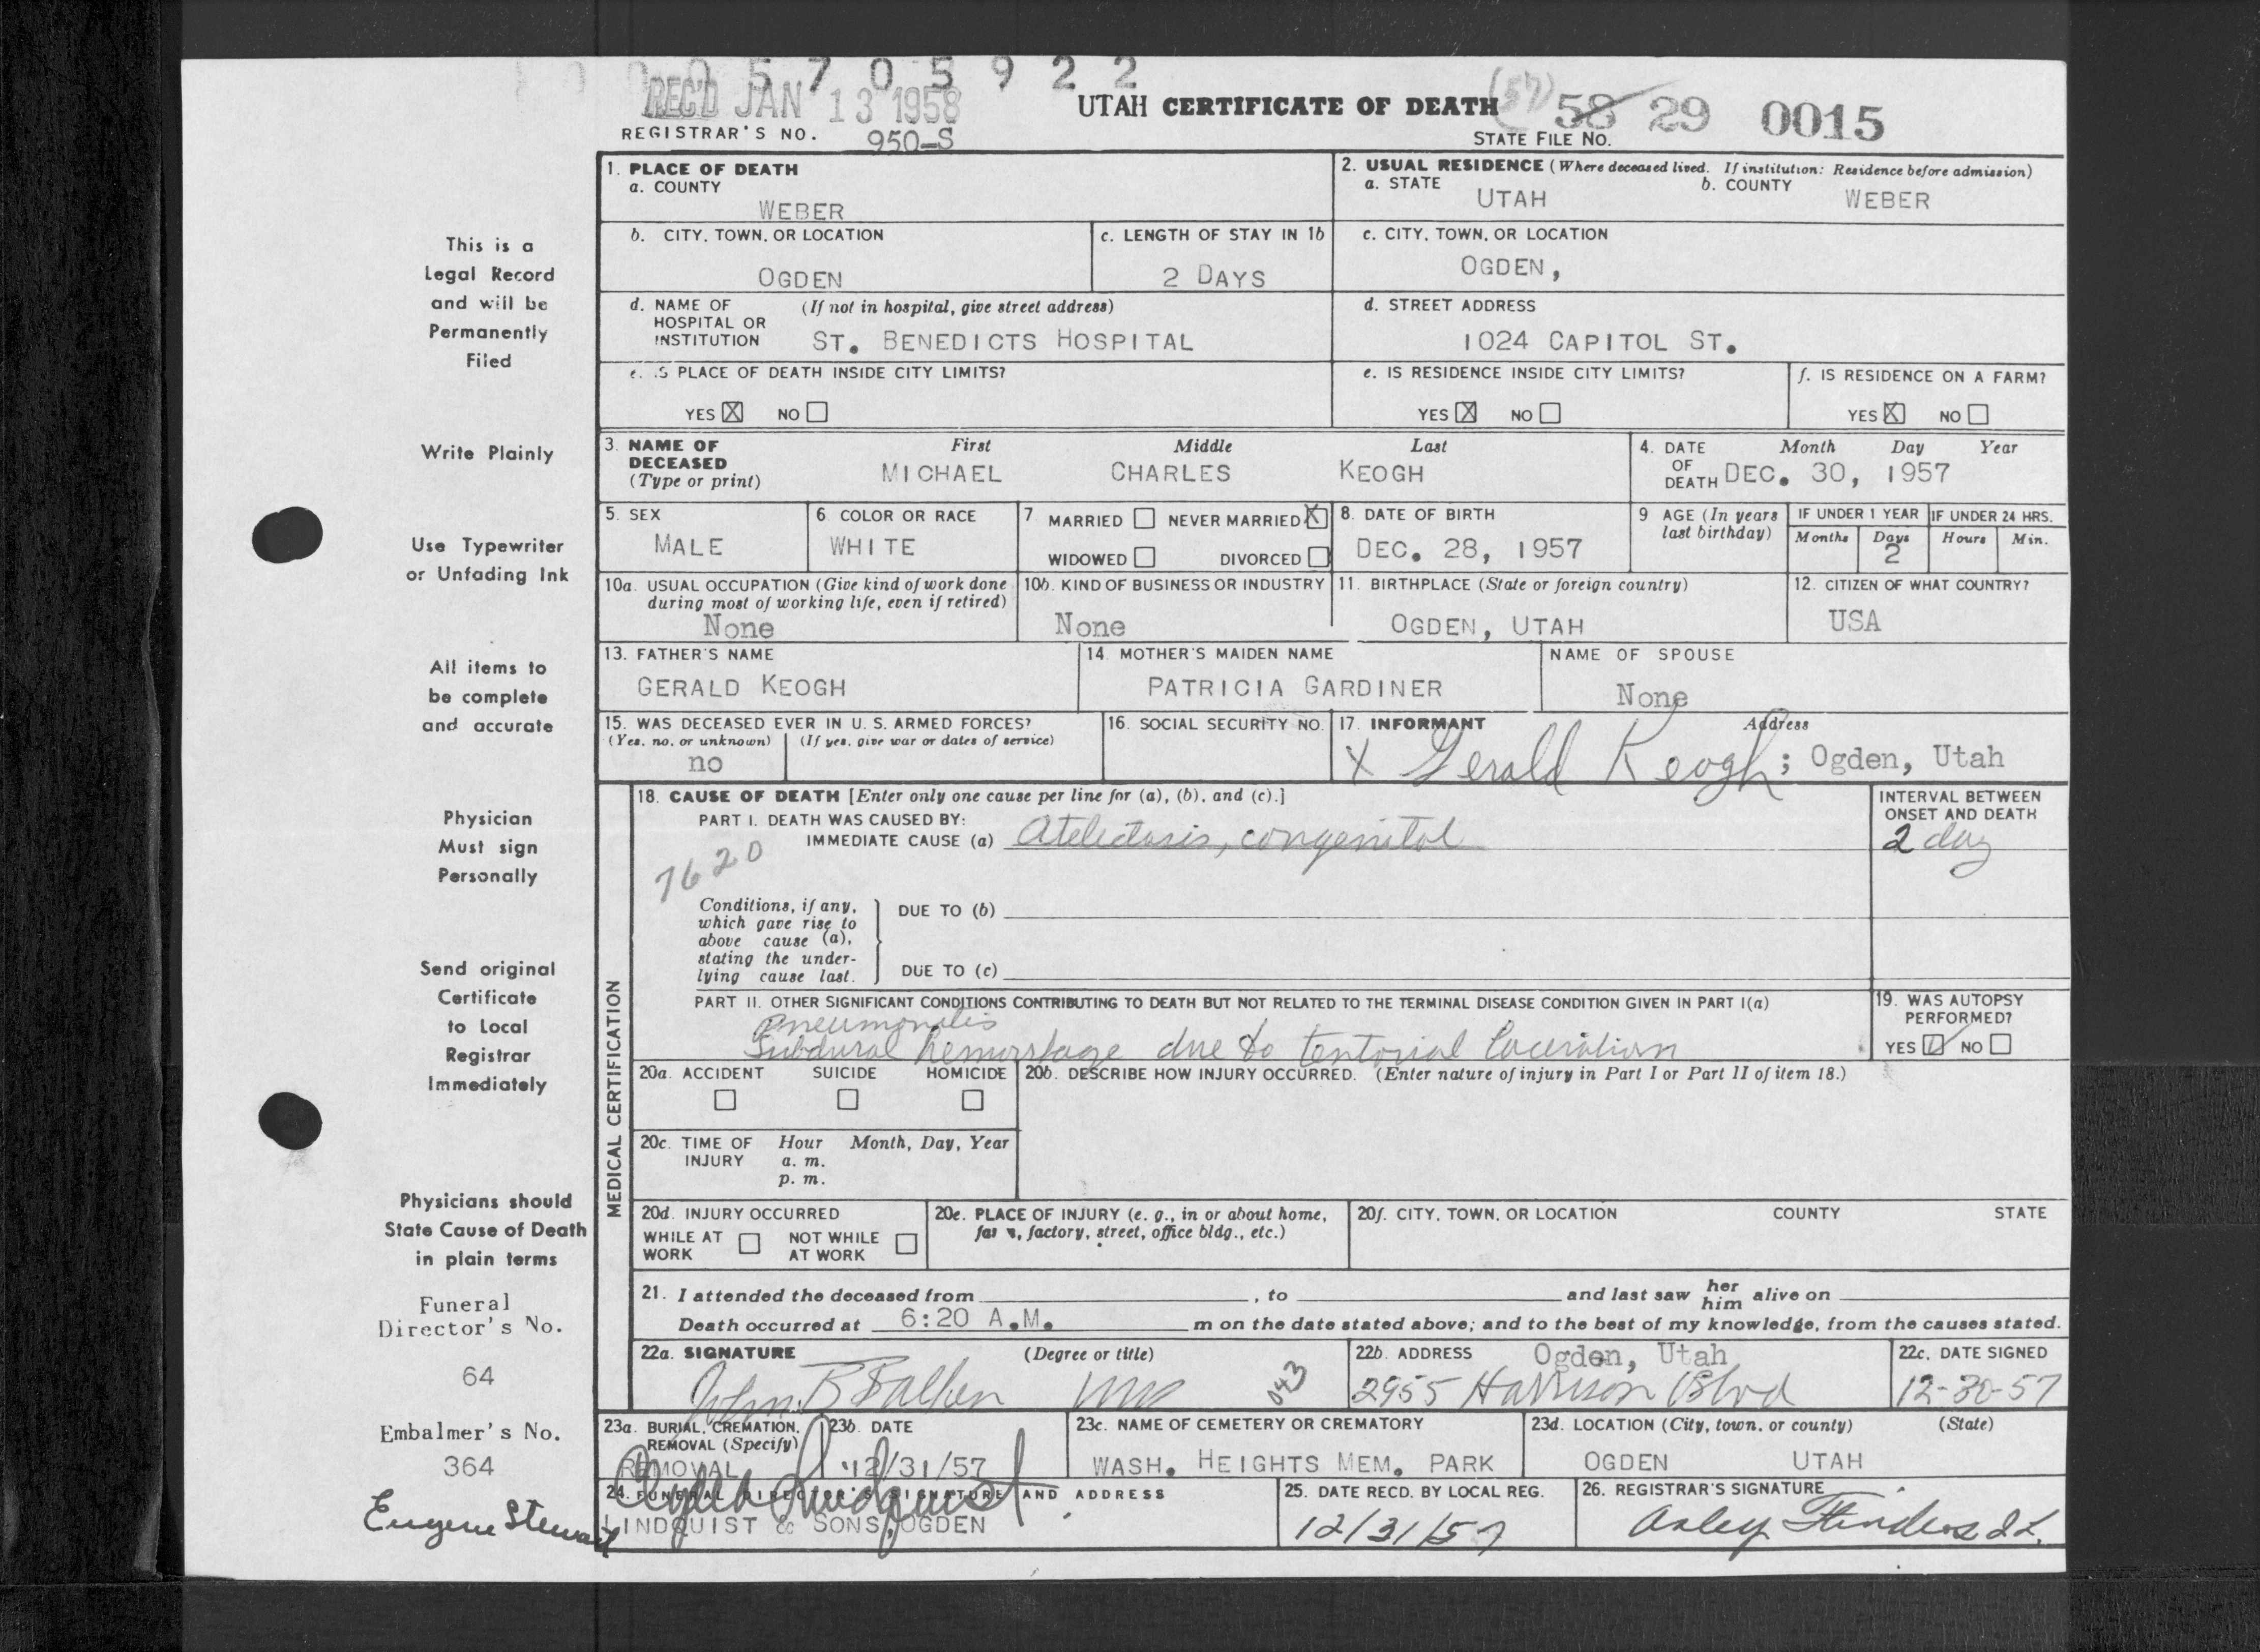 0 0 0 5 7 0 5 9 2 2
REC'D JAN 13 1958
UTAH CERTIFICATE OF DEATH (57) 58 29 0015
REGISTRAR'S NO. 950-S STATE FILE NO.
1. PLACE OF DEATH
a. COUNTY
WEBER
2. USUAL RESIDENCE (Where deceased lived. If institution: Residence before admission)
a. STATE UTAH b. COUNTY WEBER
b. CITY, TOWN, OR LOCATION
OGDEN
c. LENGTH OF STAY IN 1b
2 DAYS
c. CITY, TOWN, OR LOCATION
OGDEN,
d. NAME OF (If not in hospital, give street address)
HOSPITAL OR
INSTITUTION ST. BENEDICTS HOSPITAL
d. STREET ADDRESS
1024 CAPITOL ST.
e. IS PLACE OF DEATH INSIDE CITY LIMITS?
YES X NO
e. IS RESIDENCE INSIDE CITY LIMITS?
YES X NO
f. IS RESIDENCE ON A FARM?
YES X NO
3. NAME OF DECEASED (Type or print)
First Middle Last
MICHAEL CHARLES KEOGH
4. DATE OF DEATH
Month Day Year
DEC. 30, 1957
5. SEX
MALE
6. COLOR OR RACE
WHITE
7 MARRIED NEVER MARRIED X
WIDOWED DIVORCED
8. DATE OF BIRTH
DEC. 28, 1957
9 AGE (In years last birthday)
IF UNDER 1 YEAR
Months Days
2
IF UNDER 24 HRS.
Hours Min.
10a. USUAL OCCUPATION (Give kind of work done
during most of working life, even if retired)
None
10b. KIND OF BUSINESS OR INDUSTRY
None
11. BIRTHPLACE (State or foreign country)
OGDEN, UTAH
12. CITIZEN OF WHAT COUNTRY?
USA
13. FATHER'S NAME
GERALD KEOGH
14. MOTHER'S MAIDEN NAME
PATRICIA GARDINER
NAME OF SPOUSE
None
15. WAS DECEASED EVER IN U. S. ARMED FORCES?
(Yes, no, or unknown) (If yes, give war or dates of service)
no
16. SOCIAL SECURITY NO.
17. INFORMANT Address
X Gerald Keogh; Ogden, Utah
MEDICAL CERTIFICATION
18. CAUSE OF DEATH [Enter only one cause per line for (a), (b), and (c).]
PART I. DEATH WAS CAUSED BY:
IMMEDIATE CAUSE (a) Atelectasis, congenital
7620
INTERVAL BETWEEN
ONSET AND DEATH
2 day
Conditions, if any,
which gave rise to
above cause (a),
stating the under-
lying cause last.
DUE TO (b)
DUE TO (c)
PART II. OTHER SIGNIFICANT CONDITIONS CONTRIBUTING TO DEATH BUT NOT RELATED TO THE TERMINAL DISEASE CONDITION GIVEN IN PART I(a)
Pneumonitis
Subdural hemorrhage due to tentorial laceration
19. WAS AUTOPSY
PERFORMED?
YES NO
20a. ACCIDENT SUICIDE HOMICIDE
20b. DESCRIBE HOW INJURY OCCURRED. (Enter nature of injury in Part I or Part II of item 18.)
20c. TIME OF INJURY
Hour Month, Day, Year
a. m.
p. m.
20d. INJURY OCCURRED
WHILE AT WORK NOT WHILE AT WORK
20e. PLACE OF INJURY (e. g., in or about home,
farm, factory, street, office bldg., etc.)
20f. CITY, TOWN, OR LOCATION COUNTY STATE
21. I attended the deceased from , to and last saw her him alive on
Death occurred at 6:20 A.M. m on the date stated above; and to the best of my knowledge, from the causes stated.
22a. SIGNATURE (Degree or title)
John MD
043
22b. ADDRESS Ogden, Utah
2955 Harrison Blvd
22c. DATE SIGNED
12-30-57
23a. BURIAL, CREMATION,
REMOVAL (Specify)
REMOVAL
23b. DATE
12/31/57
23c. NAME OF CEMETERY OR CREMATORY
WASH. HEIGHTS MEM. PARK
23d. LOCATION (City, town, or county) (State)
OGDEN UTAH
24. FUNERAL DIRECTOR'S SIGNATURE AND ADDRESS
Lindquist
LINDQUIST & SONS, OGDEN
25. DATE RECD. BY LOCAL REG.
12/31/57
26. REGISTRAR'S SIGNATURE
Flinders
This is a
Legal Record
and will be
Permanently
Filed
Write Plainly
Use Typewriter
or Unfading Ink
All items to
be complete
and accurate
Physician
Must sign
Personally
Send original
Certificate
to Local
Registrar
Immediately
Physicians should
State Cause of Death
in plain terms
Funeral
Director's No.
64
Embalmer's No.
364
Eugene Stewart